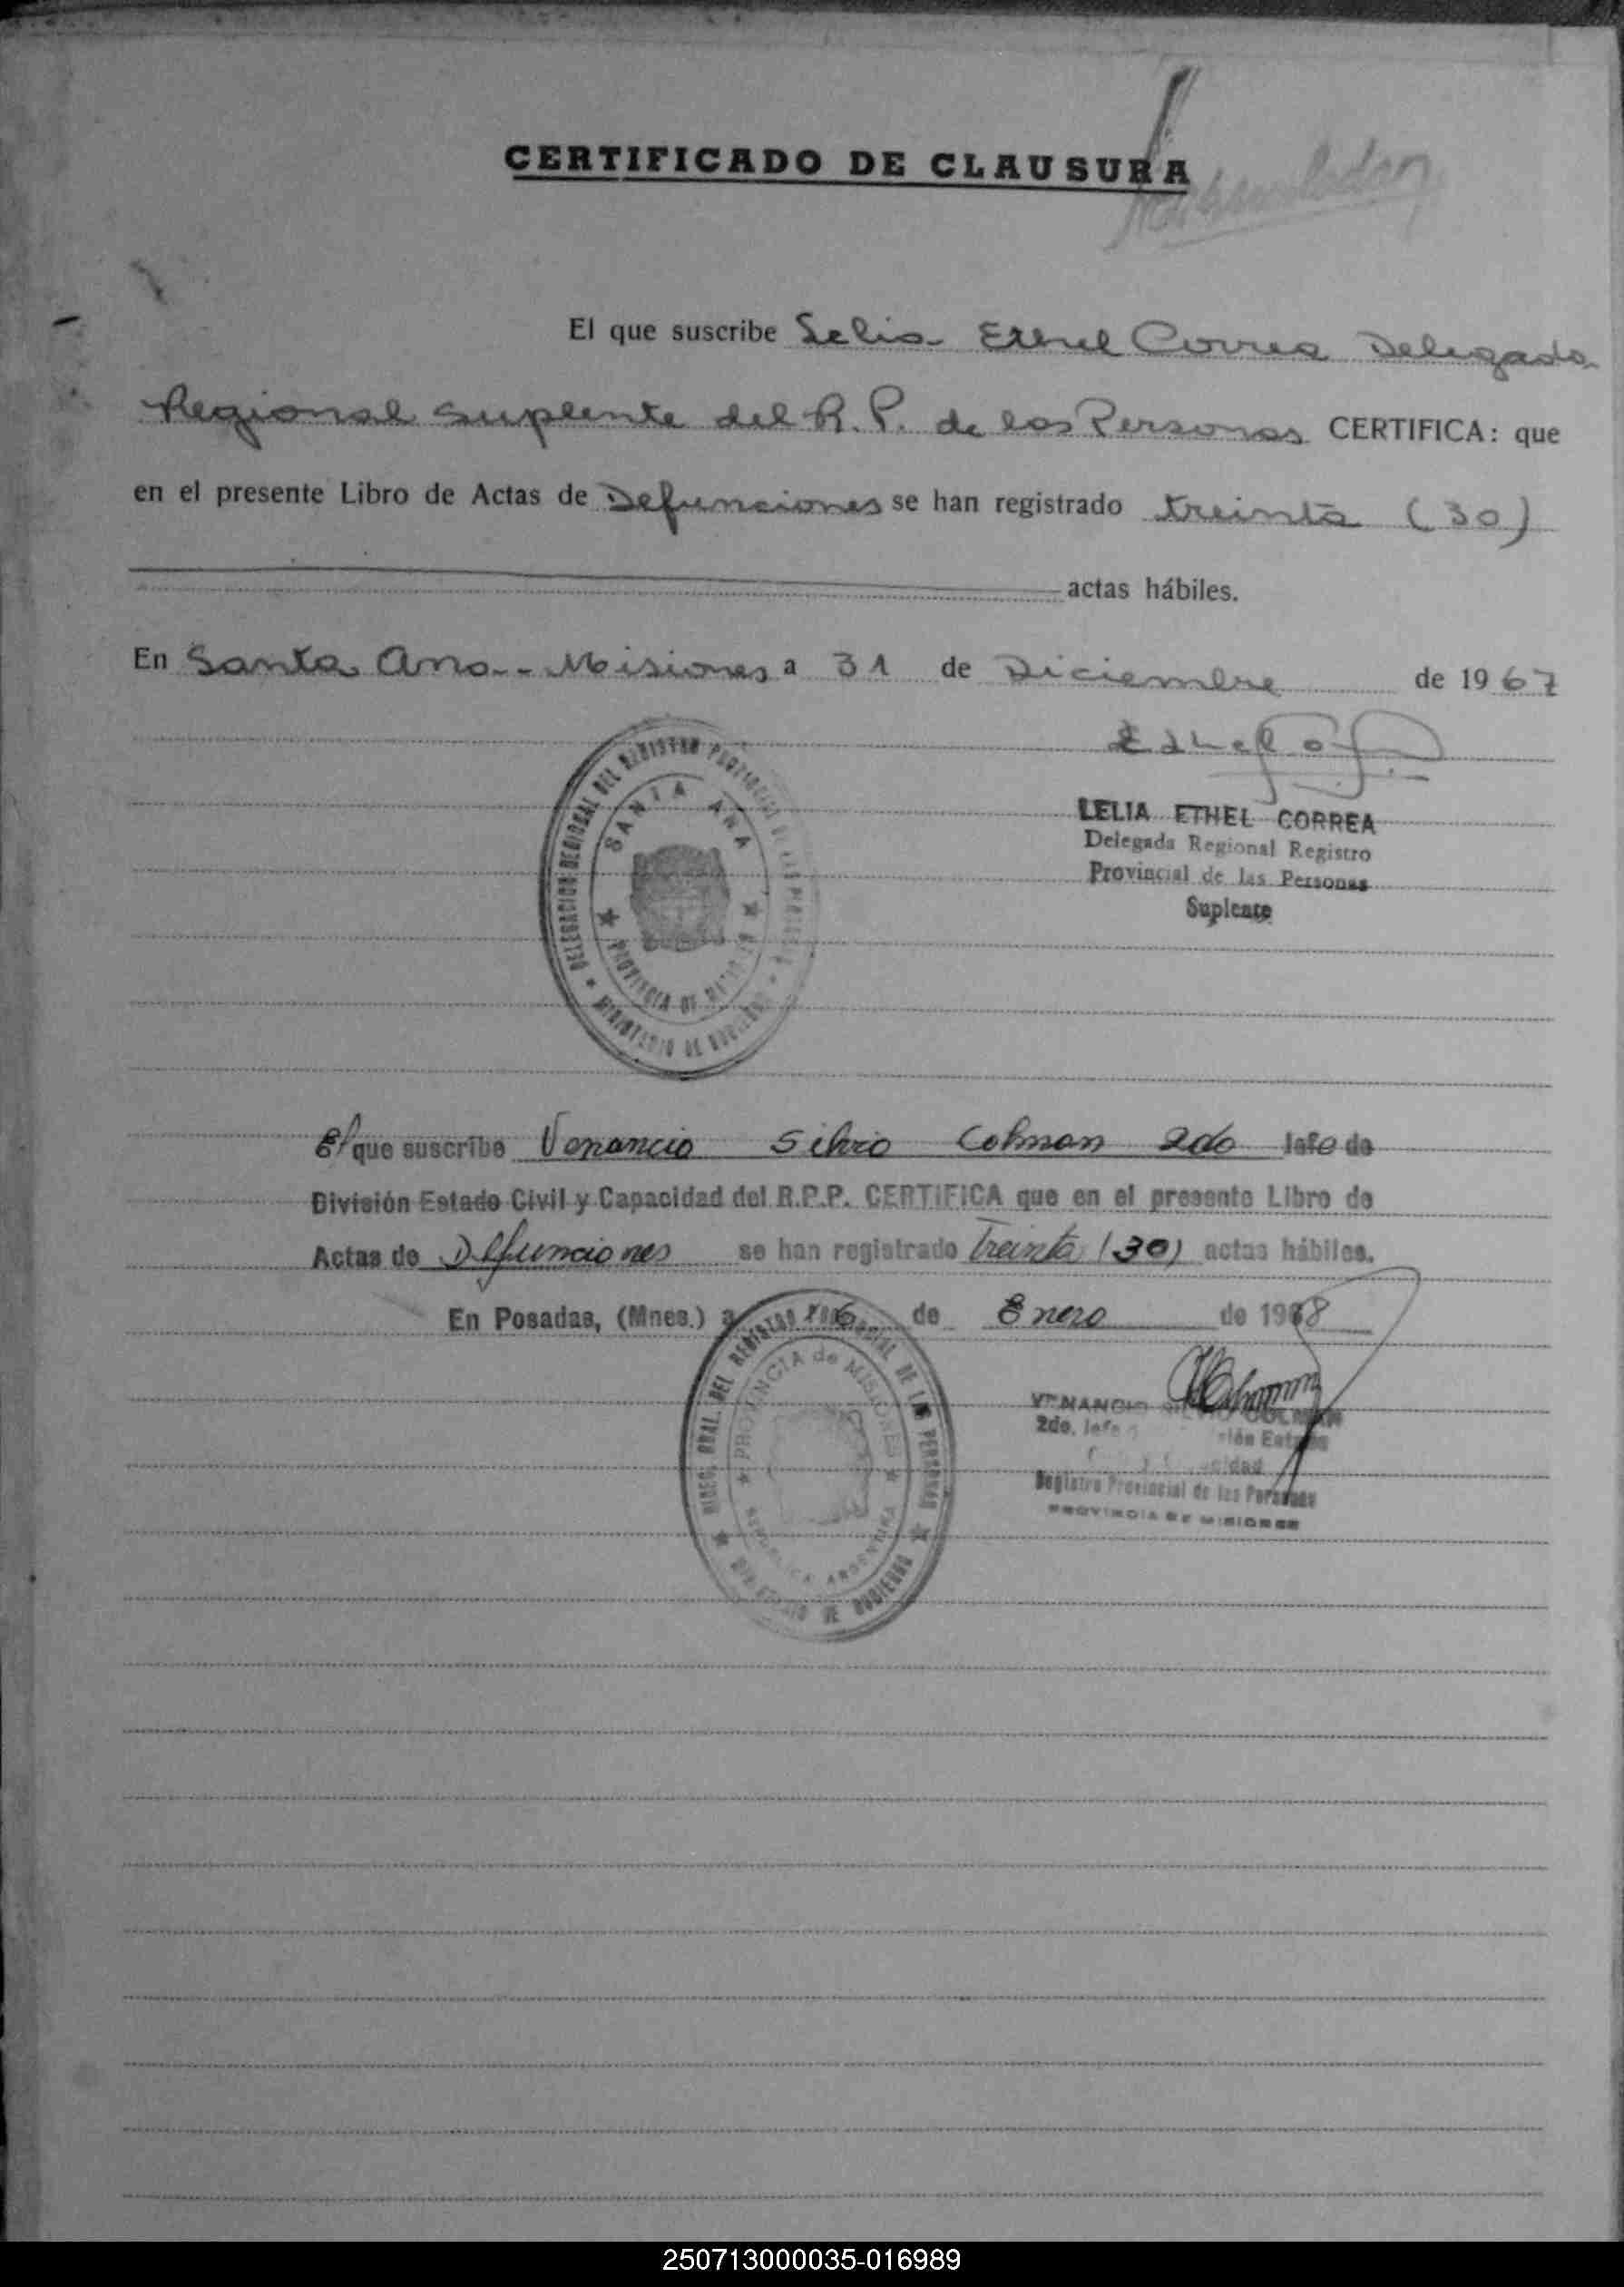 CERTIFICADO DE CLAUSURA
El que suscribe Lelia Ethel Correa Delegada
Regional Suplente del R. P. de las Personas CERTIFICA: que
en el presente Libro de Actas de Defunciones se han registrado treinta (30)
actas hábiles.
En Santa Ana - Misiones a 31 de Diciembre de 1967
DELEGACION REGIONAL DEL REGISTRO PROVINCIAL DE LAS PERSONAS
SANTA ANA
PROVINCIA DE MISIONES
MINISTERIO DE GOBIERNO
LELIA ETHEL CORREA
Delegada Regional Registro
Provincial de las Personas
Suplente
El que suscribe Venancio Silvio Colman 2do Jefe de
División Estado Civil y Capacidad del R.P.P. CERTIFICA que en el presente Libro de
Actas de Defunciones se han registrado Treinta (30) actas hábiles.
En Posadas, (Mnes.) a 16 de Enero de 1968
DIREC. GRAL. DEL REGISTRO PROVINCIAL DE LAS PERSONAS
PROVINCIA de MISIONES
REPUBLICA ARGENTINA
MINISTERIO DE GOBIERNO
VENANCIO SILVIO COLMAN
2do. Jefe
Registro Provincial de las Personas
PROVINCIA DE MISIONES
250713000035-016989